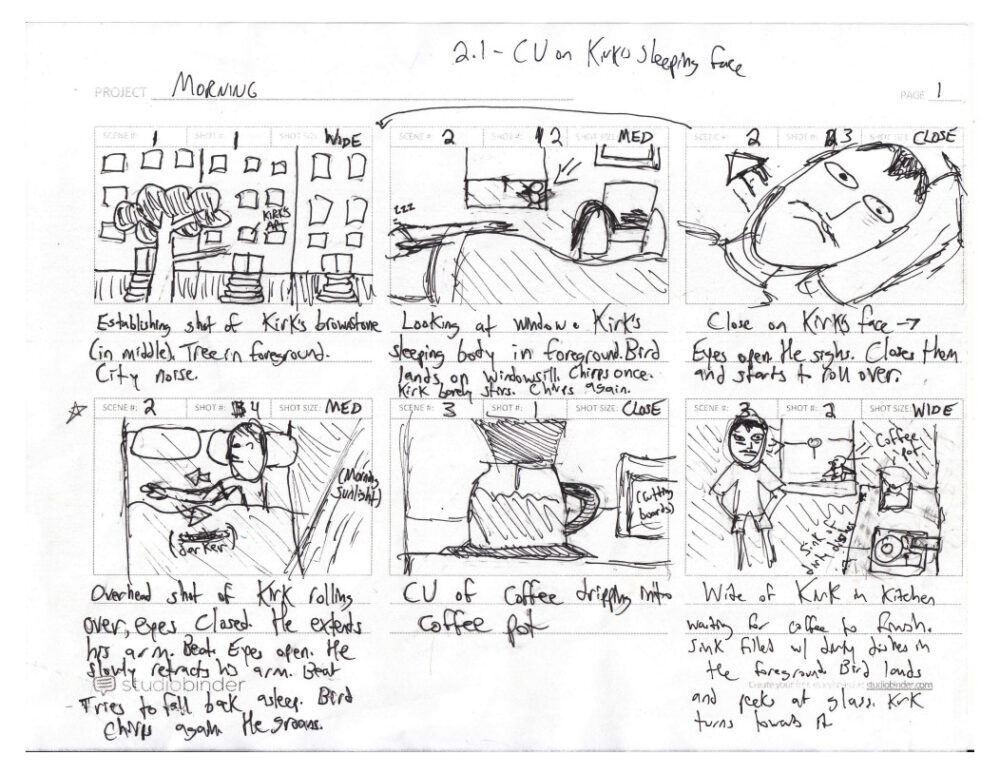 2.1 - CU on Kirk's sleeping face
PROJECT MORNING
PAGE 1
SCENE #: 1 SHOT #: 1 SHOT SIZE: WIDE
KIRK'S
APT
Establishing shot of Kirk's brownstone
(in middle). Tree in foreground.
City noise.
SCENE #: 2 SHOT #: 2 SHOT SIZE: MED
zzz
Looking at window. Kirk's
sleeping body in foreground. Bird
lands on windowsill. Chirps once.
Kirk barely stirs. Chirps again.
SCENE #: 2 SHOT #: 3 SHOT SIZE: CLOSE
Close on Kirk's face →
Eyes open. He sighs. Closes them
and starts to roll over.
SCENE #: 2 SHOT #: 4 SHOT SIZE: MED
(Morning
Sunlight)
(darker)
Overhead shot of Kirk rolling
over, eyes closed. He extends
his arm. Beat. Eyes open. He
slowly retracts his arm. Beat
Tries to fall back asleep. Bird
chirps again. He groans.
studiobinder
SCENE #: 3 SHOT #: 1 SHOT SIZE: CLOSE
(Cutting
boards)
CU of coffee dripping into
coffee pot
SCENE #: 3 SHOT #: 2 SHOT SIZE: WIDE
Coffee
pot.
Sink of
dirty dishes
Wide of Kirk in kitchen
waiting for coffee to finish.
Sink filled w/ dirty dishes in
the foreground. Bird lands
and pecks at glass. Kirk
turns towards it
studiobinder.com